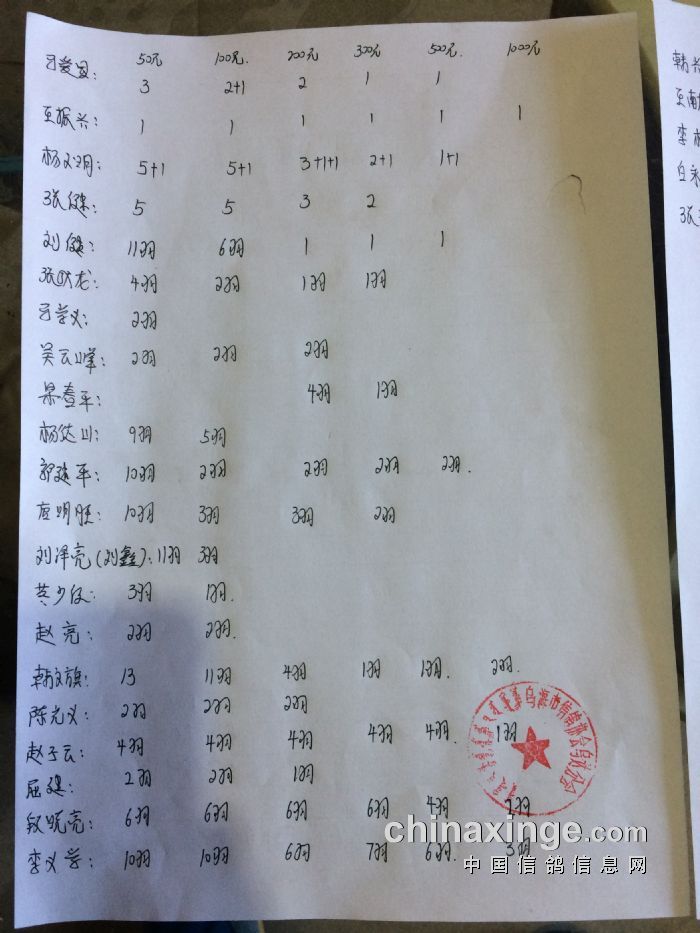 50元 100元. 200元 300元 500元. 1000元
3 2+1 2 1 1
王振兴: 1 1 1 1 1 1
杨文明: 5+1 5+1 3+1+1 2+1 1+1
张健: 5 5 3 2
刘健: 11羽 6羽 1 1 1
张跃龙: 4羽 2羽 1羽 1羽
2羽
吴云峰: 2羽 2羽 2羽
梁春平: 4羽 1羽
杨佐山: 9羽 5羽
郭建平: 10羽 2羽 2羽 2羽 2羽.
10羽 3羽 3羽 2羽
刘泽亮(刘鑫): 11羽 3羽
3羽 1羽.
赵亮: 2羽 2羽.
韩文旗: 13 11羽 4羽 1羽 1羽. 2羽
陈光义: 2羽 2羽 2羽
赵子云: 4羽 4羽 4羽 4羽 4羽. 1羽
屈建: 2羽 2羽 1羽
段晓亮: 6羽 6羽 6羽 6羽 4羽 羽
李义学: 10羽 10羽 6羽 7羽 6羽. 3羽
乌海市信鸽协会乌达分会
chinaxinge.com
中国信鸽信息网
韩
李
张